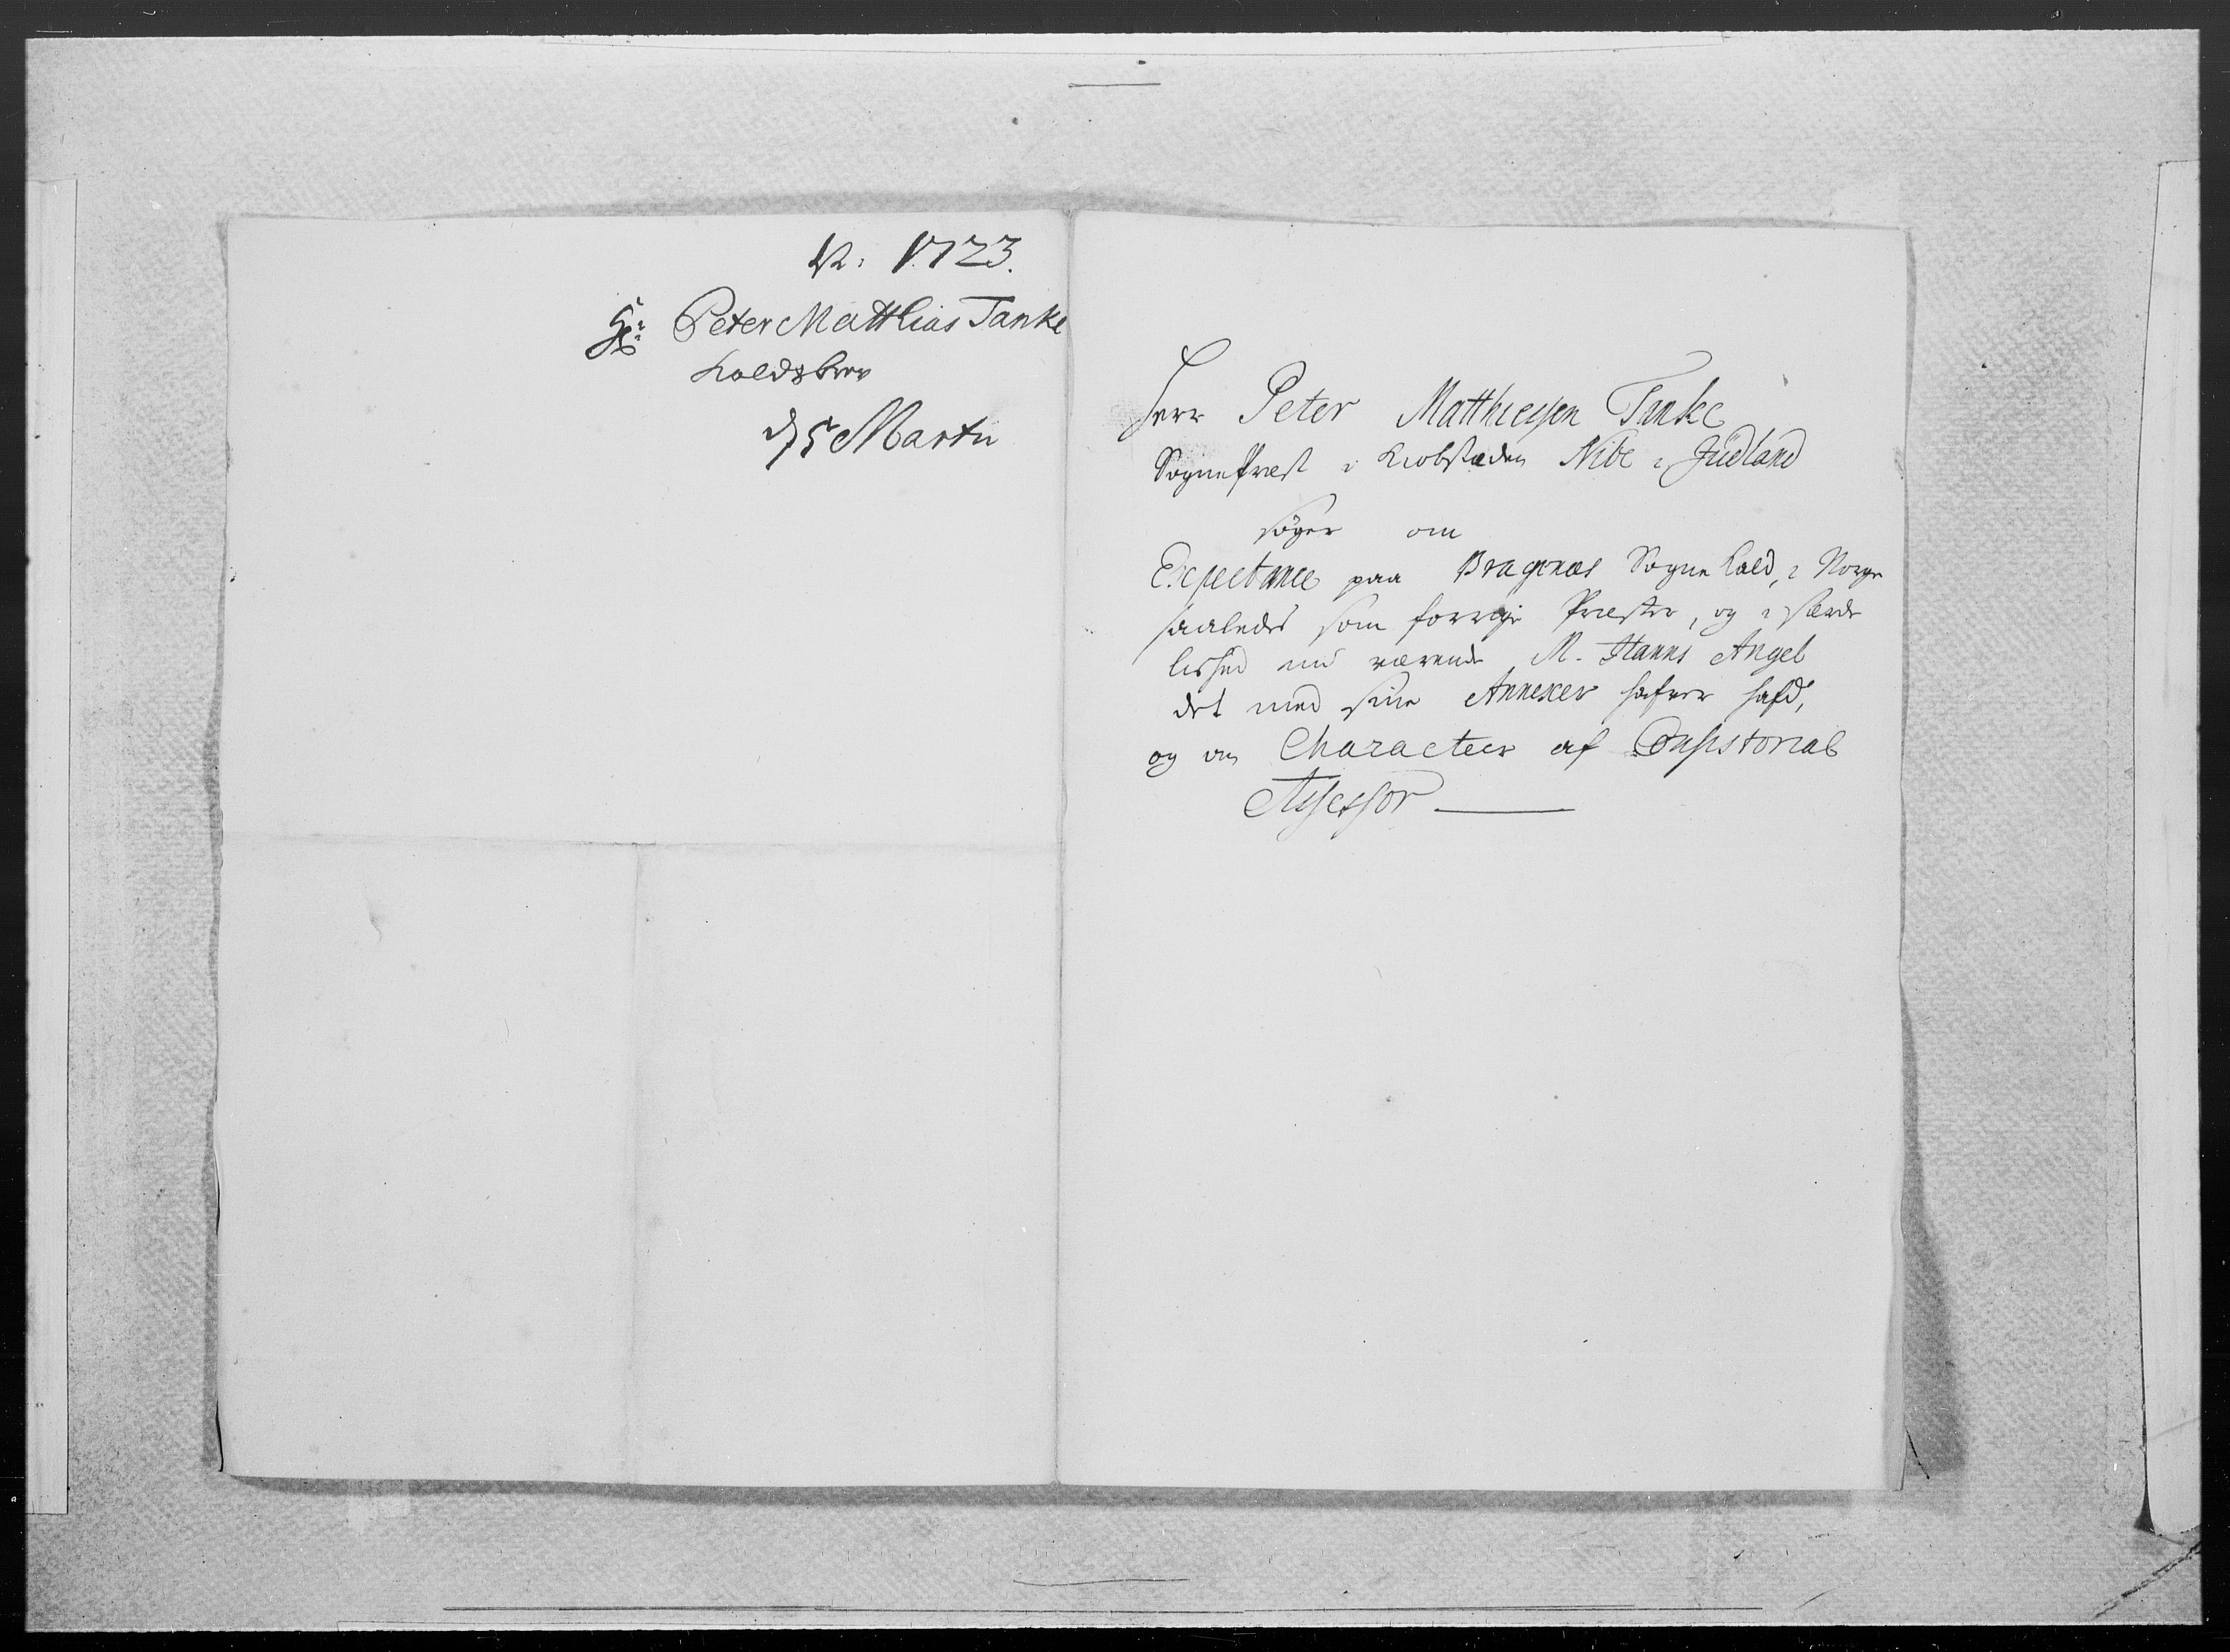 1723.
Hr: Peter Matthias Tanke
Kaldsbrev
d 5 Martii
Herr Peter Matthiesen Tanke
Sognepræst i Kiobstæden Nibe i Jüdland
søger om
Expectance paa Bragenæs Sogne Kald, i Norge
saaledes som forrige Præster, og i særde
lished nu værende M. Hanns Angel
det med sine Annexer hafver hafd,
og om Characteer af Consistorial
Assessor